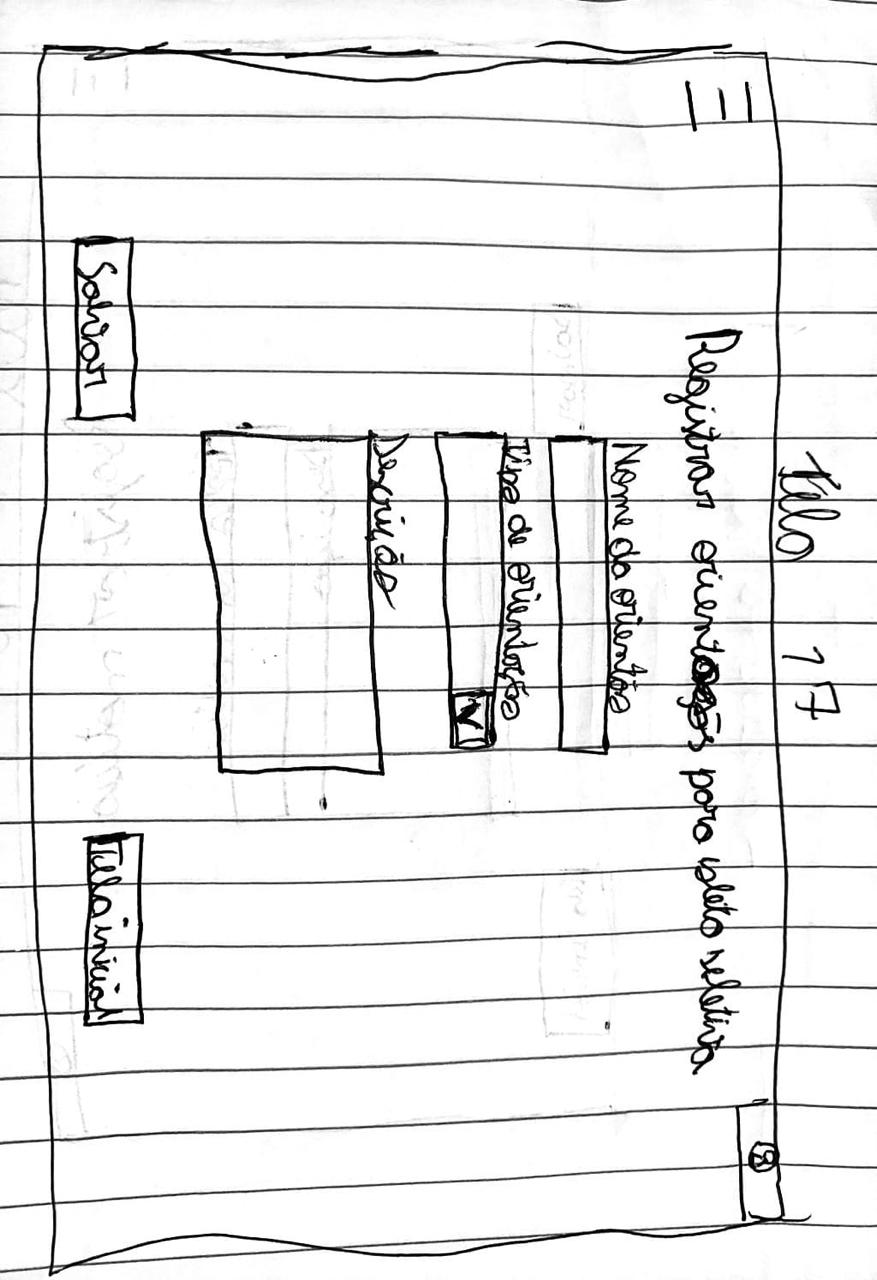 Tela 17
Registrar orientações para coleta seletiva
Nome da orientação
Tipo de orientação
Descrição
Salvar
Tela inicial